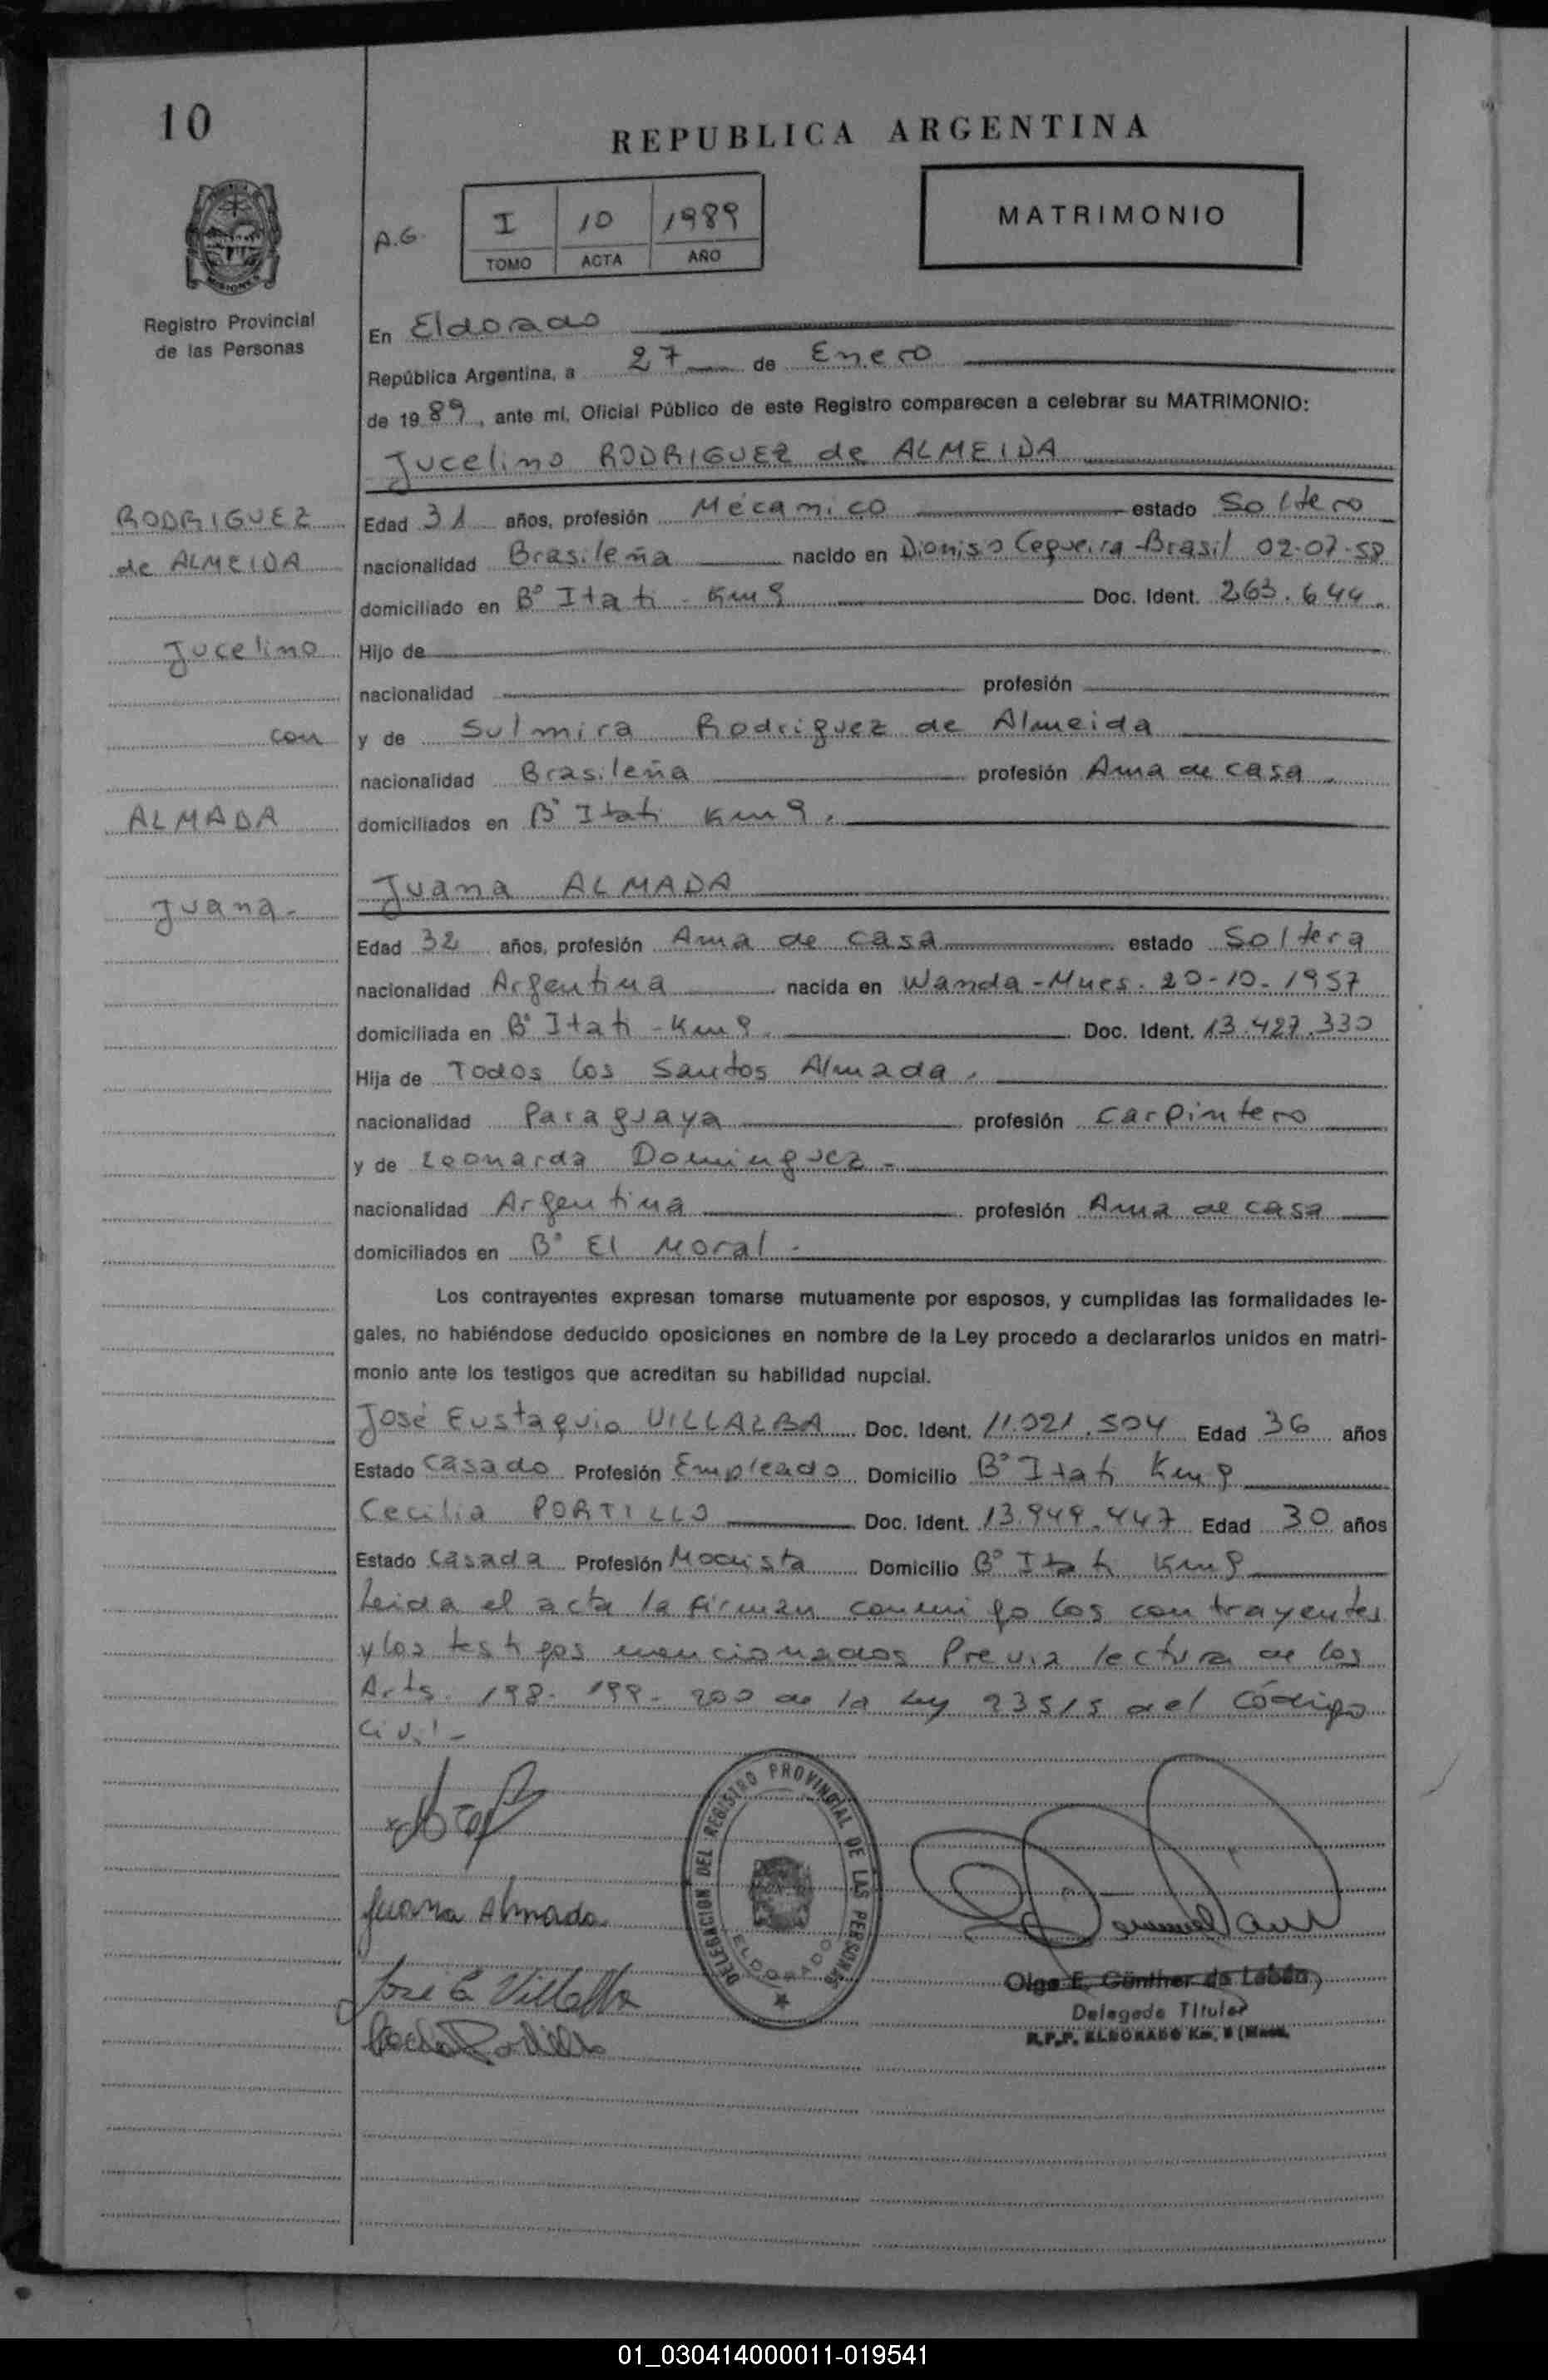 10
REPUBLICA ARGENTINA
MATRIMONIO
A.G. I 10 1989
TOMO ACTA AÑO
Registro Provincial
de las Personas
En Eldorado
República Argentina, a 27 de Enero
de 1989, ante mí, Oficial Público de este Registro comparecen a celebrar su MATRIMONIO:
Jucelino RODRIGUEZ de ALMEIDA
RODRIGUEZ
de ALMEIDA
Jucelino
con
ALMADA
Juana.-
Edad 31 años, profesión Mécanico estado Soltero
nacionalidad Brasileña nacido en Dioniso Cequeira-Brasil 02-07-58
domiciliado en B° Itati - Km 9 Doc. Ident. 263.644.
Hijo de
nacionalidad profesión
y de Sulmira Rodriguez de Almeida
nacionalidad Brasileña profesión Ama de casa.
domiciliados en B° Itati Km 9.
Juana ALMADA
Edad 32 años, profesión Ama de casa estado Soltera
nacionalidad Argentina nacida en Wanda - Mnes. 20-10-1957
domiciliada en B° Itati - Km 9. Doc. Ident. 13.427.330
Hija de Todos los Santos Almada.
nacionalidad Paraguaya profesión Carpintero
y de Leonarda Dominguez -
nacionalidad Argentina profesión Ama de casa
domiciliados en B° El Moral -
Los contrayentes expresan tomarse mutuamente por esposos, y cumplidas las formalidades le-
gales, no habiéndose deducido oposiciones en nombre de la Ley procedo a declararlos unidos en matri-
monio ante los testigos que acreditan su habilidad nupcial.
José Eustaquio VILLALBA Doc. Ident. 11.021.504 Edad 36 años
Estado Casado Profesión Empleado Domicilio B° Itati Km 9
Cecilia PORTILLO Doc. Ident. 13.949.447 Edad 30 años
Estado Casada Profesión Modista Domicilio B° Itati Km 9
Leida el acta la firman conmigo los contrayentes
y los testigos mencionados Previa lectura de los
Arts. 198- 199- 200 de la Ley 23515 del Código
Civil -
Juana Almada
José E Villalba
DELEGACION DEL REGISTRO PROVINCIAL DE LAS PERSONAS
ELDORADO
Olga E. Günther de Labán
Delegada Titular
R.P.P. ELDORADO Km. 9 (Mnes.
01_030414000011-019541